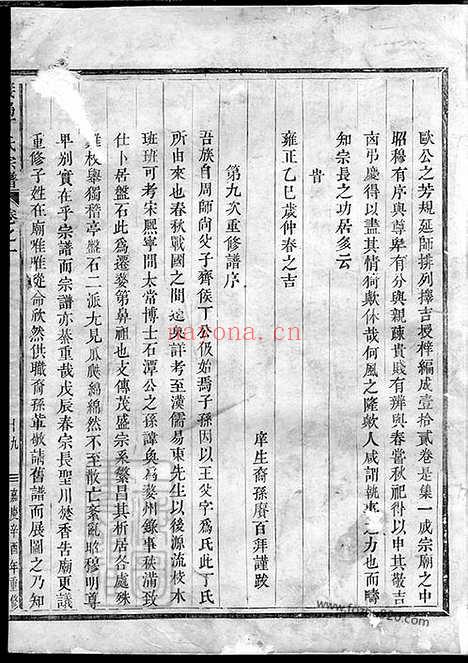 歐公之芳規延師排列擇吉授梓編成壹拾貳卷是集一成宗廟之中
昭穆有序與尊卑有分與親疎貴賤有辨與春嘗秋祀得以申其敬吉
凶弔慶得以盡其情猗歟休哉何風之隆歟人咸謂之力也而疇
知宗長之功居多云
旹
雍正乙巳歲仲春之吉
庠生裔孫賡百拜謹跋
第九次重修譜序
吾族自周師尚父子齊侯丁公伋始焉子孫因以王父字爲氏此丁氏
所由來也春秋戰國之間遠莫詳考至漢儒易東先生以後源流枝木
班班可考宋熙寧間太常博士石潭公之孫諱奐爲婺州錄事秩滿致
仕卜居盤石此爲遷婺第鼻祖也文傳茂盛宗系繁昌其析居各處殊
難枚舉獨稽亭盤石二派尢見瓜爬綿綿然不至散亡紊亂昭穆明尊
卑别實在乎宗譜而宗譜亦綦重哉戊辰春宗長聖川焚香告廟更議
重修子姓在廟雍雍從命欣然供職裔孫革敬請舊譜而展圖之乃知
氏宗譜
卷之一
十九
嘉慶辛酉年重修
natona.cn
www.fozhu920.com